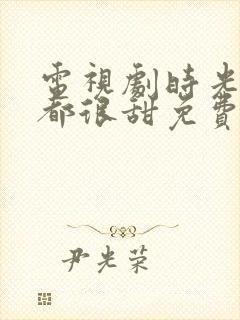 電視劇時光
都很甜免費
尹光荣